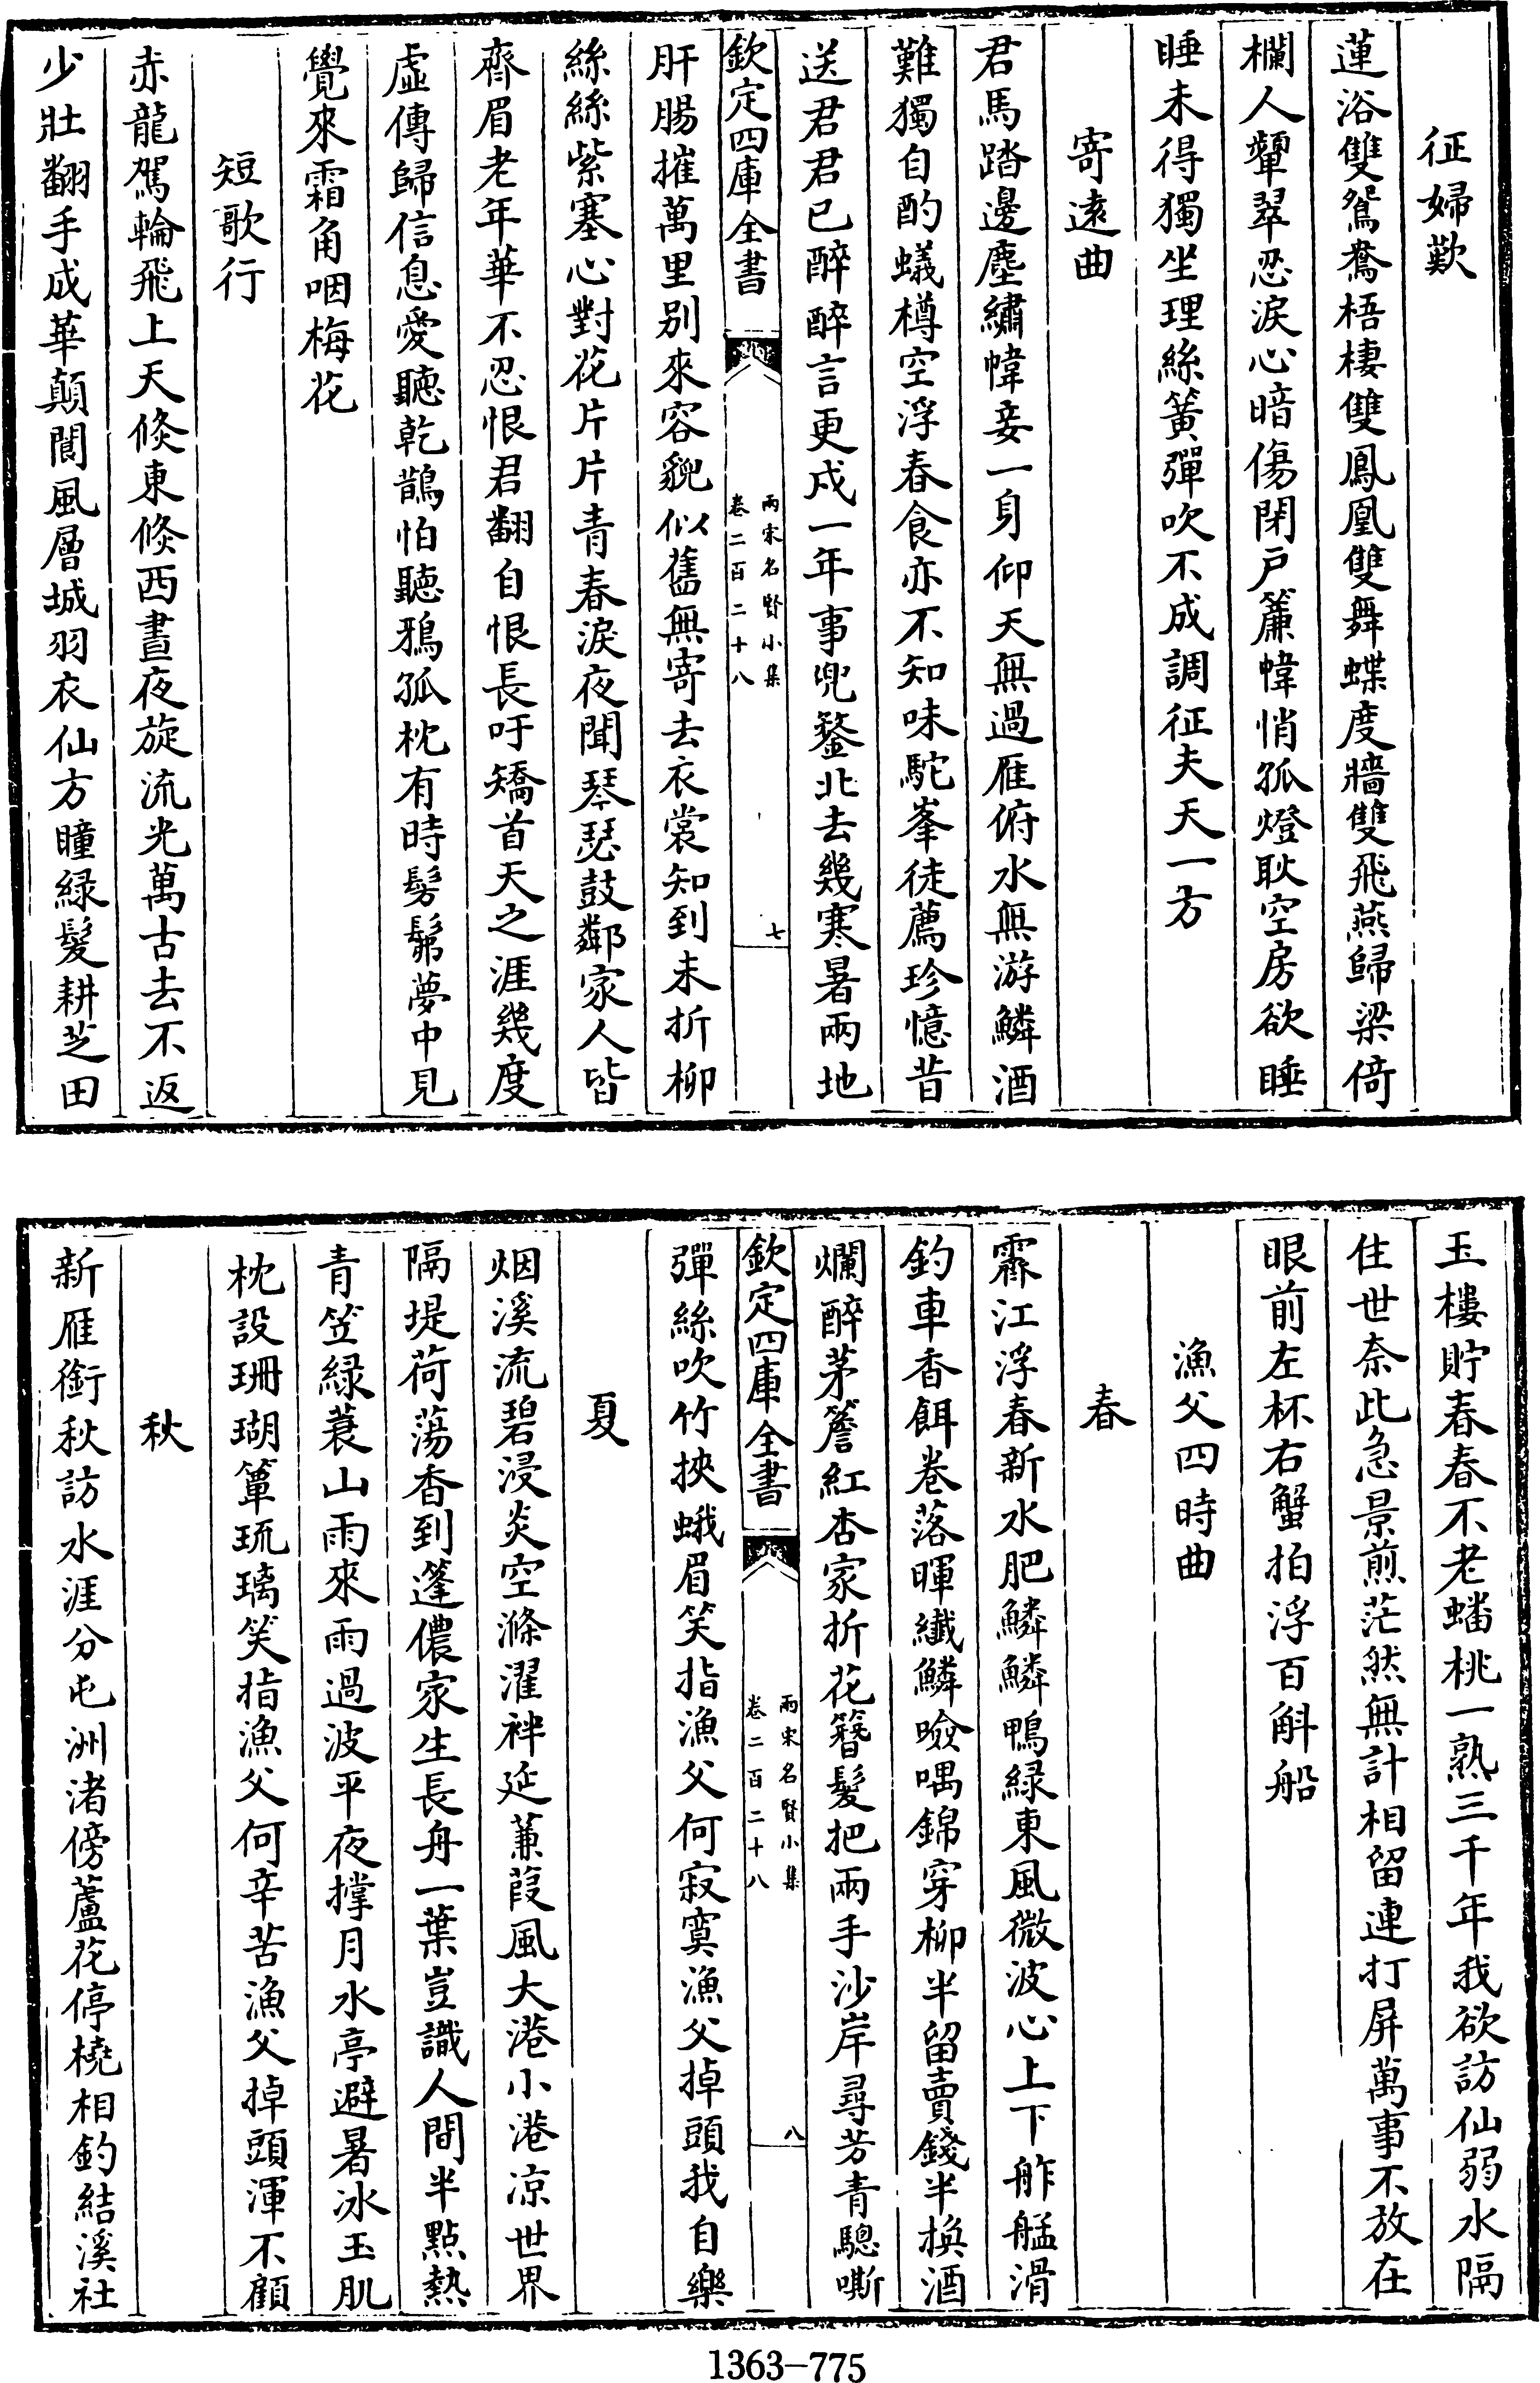 征婦歎
蓮浴雙鴛鴦梧棲雙鳳凰雙舞蝶度牆雙飛燕歸梁倚
欄人顰翠忍淚心暗傷閉戶簾幃悄孤燈耿空房欲睡
睡未得獨坐理絲簧彈吹不成調征夫天一方
寄遠曲
君馬踏邊塵繡幃妾一身仰天無過雁俯水無游鱗酒
難獨自酌蟻樽空浮春食亦不知味駝峯徒薦珍憶昔
送君君已醉醉言更戍一年事兜鍪北去幾寒暑兩地
欽定四庫全書
兩宋名賢小集
卷二百二十八
七
肝腸摧萬里別來容貌似舊無寄去衣裳知到未折柳
絲絲紫塞心對花片片青春淚夜聞琴瑟鼓鄰家人皆
齊眉老年華不忍恨君翻自恨長吁矯首天之涯幾度
虛傳歸信息愛聽乾鵲怕聽鴉孤枕有時髣髴夢中見
覺來霜角咽梅花
短歌行
赤龍駕輪飛上天倏東倏西晝夜旋流光萬古去不返
少壯翻手成華顛閬風層城羽衣仙方瞳緑髮耕芝田
玉樓貯春春不老蟠桃一熟三千年我欲訪仙弱水隔
住世奈此急景煎茫然無計相留連打屏萬事不放在
眼前左杯右蟹拍浮百斛船
漁父四時曲
春
霽江浮春新水肥鱗鱗鴨緑東風微波心上下舴艋滑
釣車香餌卷落暉纖鱗噞喁錦穿柳半留賣錢半換酒
爛醉茅簷紅杏家折花簪髮把兩手沙岸尋芳青驄嘶
欽定四庫全書
兩宋名賢小集
卷二百二十八
八
彈絲吹竹挾蛾眉笑指漁父何寂寞漁父掉頭我自樂
夏
烟溪流碧浸炎空滌濯袢延蒹葭風大港小港凉世界
隔堤荷蕩香到篷儂家生長舟一葉豈識人間半點熱
青笠緑蓑山雨來雨過波平夜撑月水亭避暑冰玉肌
枕設珊瑚簟琉璃笑指漁父何辛苦漁父掉頭渾不顧
秋
新雁銜秋訪水涯分屯洲渚傍蘆花停橈相釣結溪社
1363-775